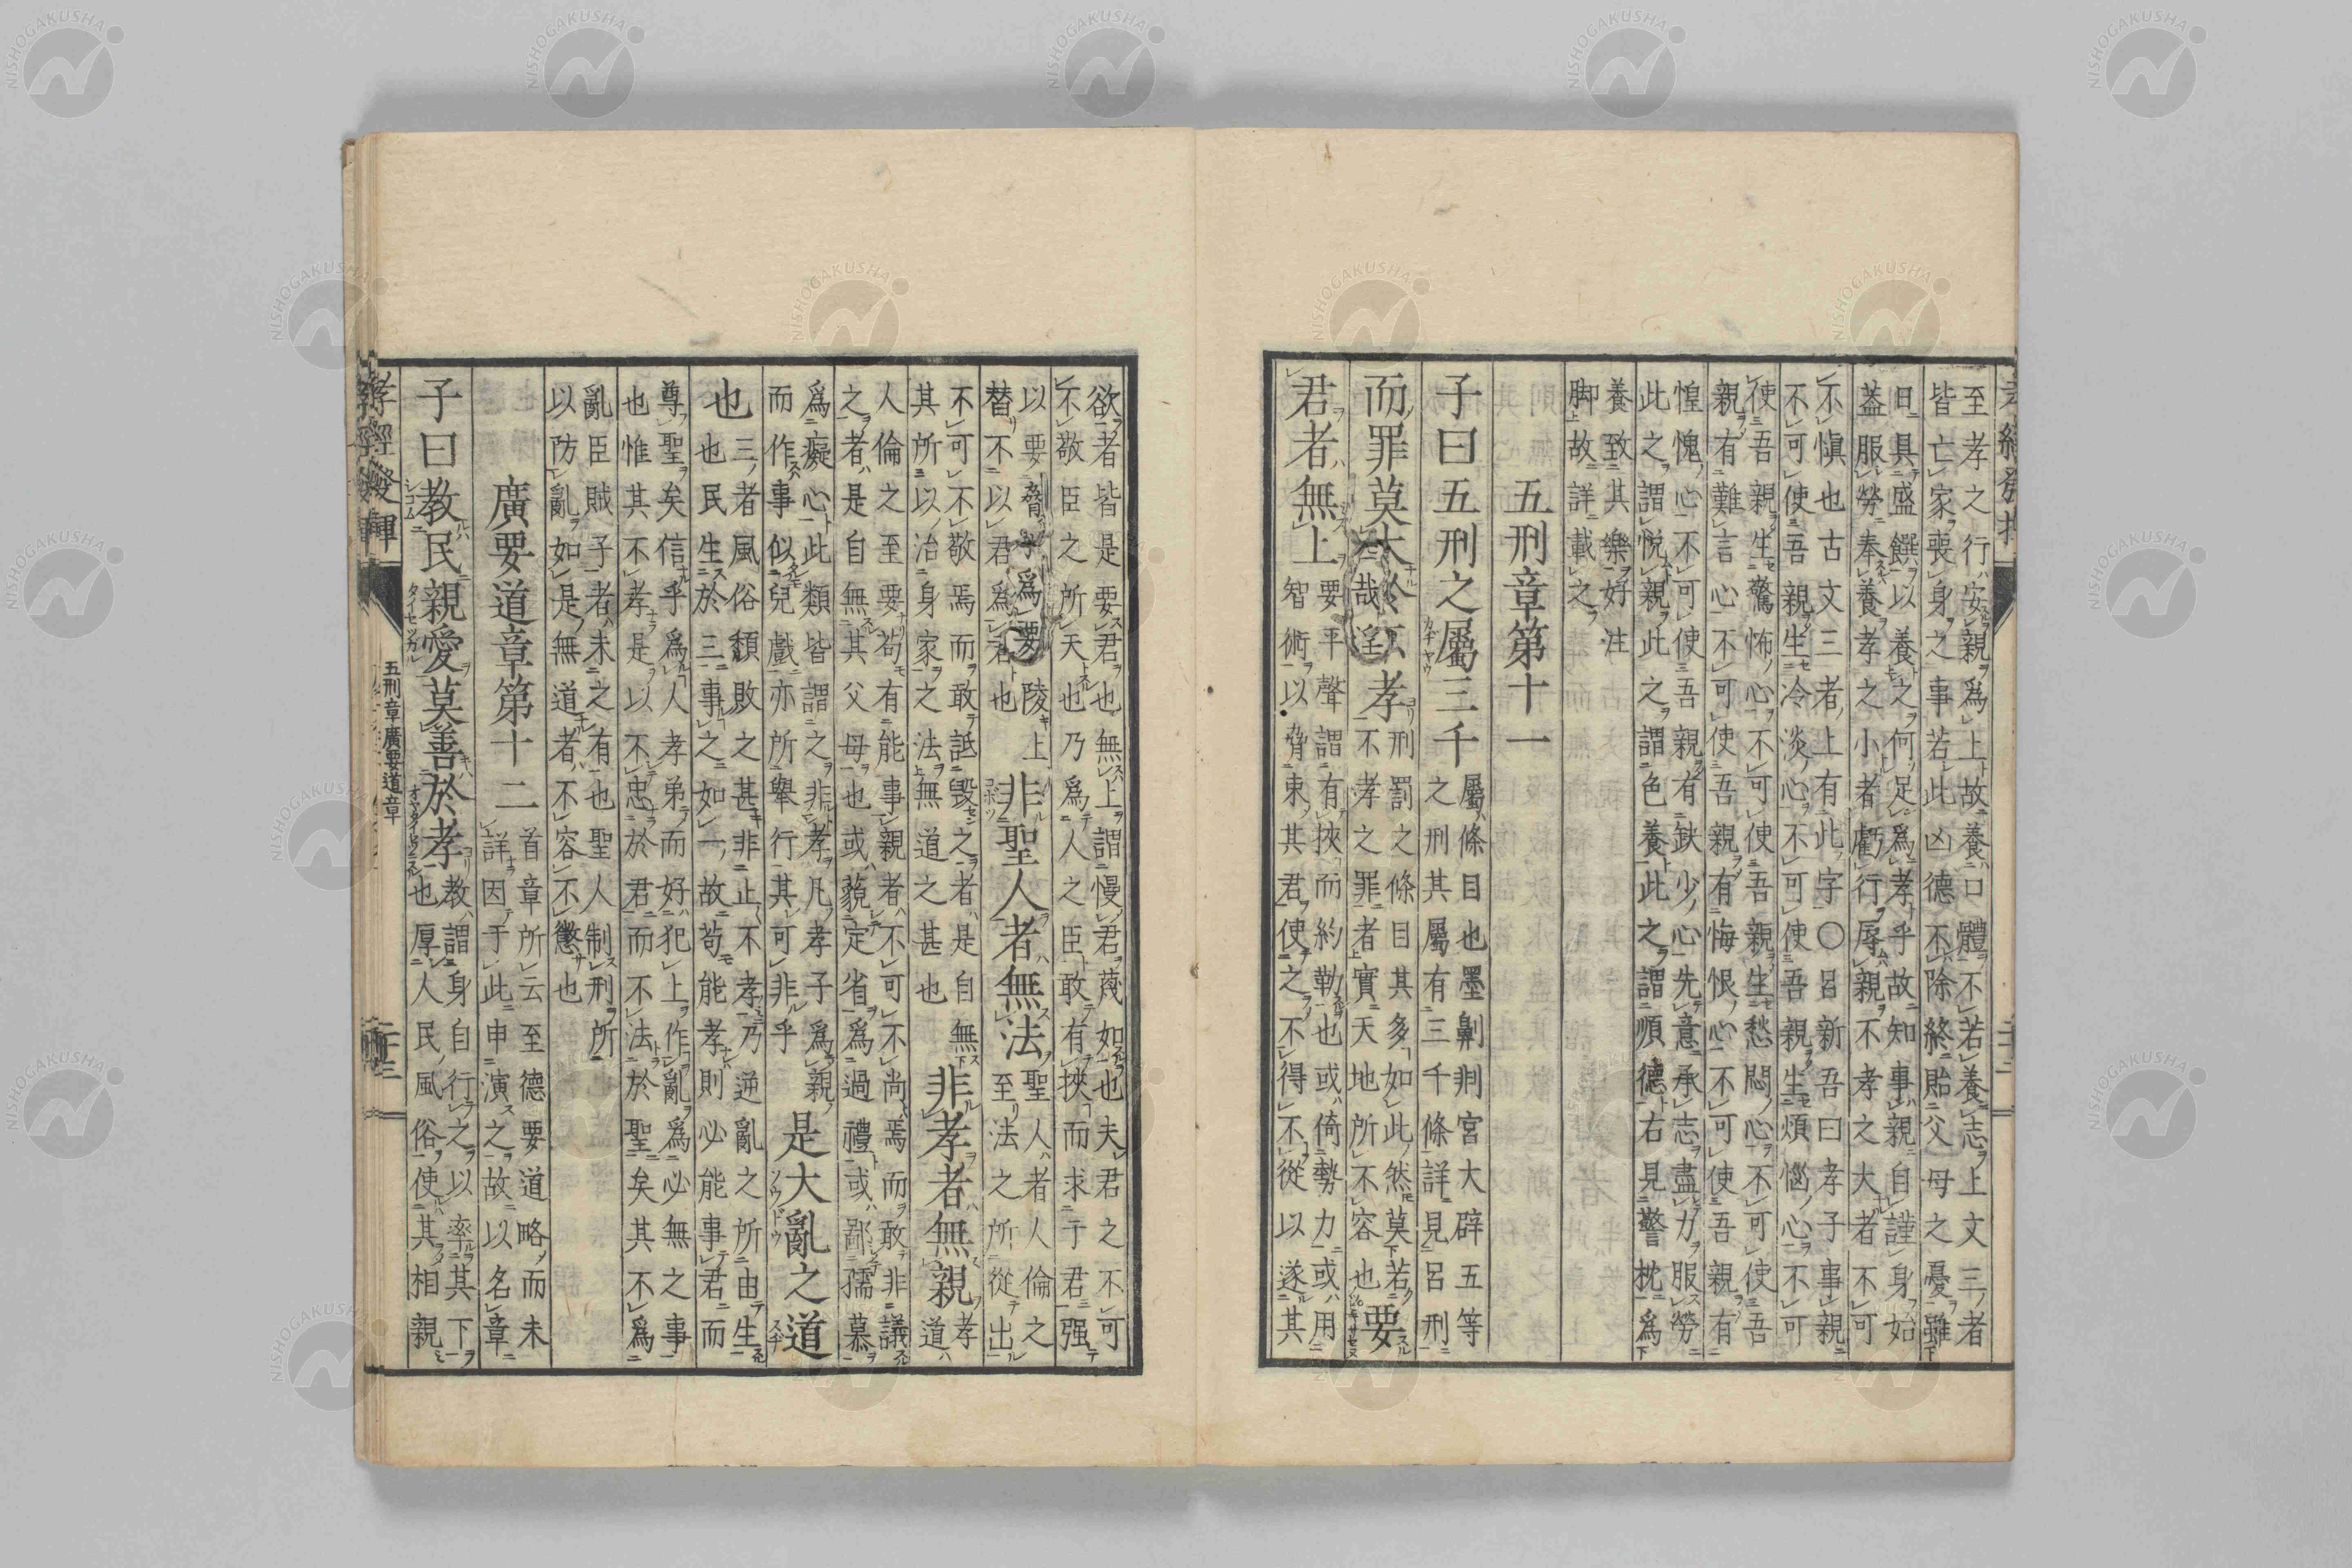 至孝之行安親爲上故養口體不若養志上文三者
皆亡家喪身之事若此凶德不除終貽父母之憂雖
日具盛饌以養之何足爲孝乎故知事親自謹身如
蓋服勞奉養孝之小者虧行辱親不孝之大者不可
不愼也古文三者上有此字〇呂新吾曰孝子事親
不可使吾親生冷淡心不可使吾親生煩惱心不可
使吾親生驚怖心不可使吾親生愁悶心不可使吾
親有難言心不可使吾親有悔恨心不可使吾親有
惶愧心不可使吾親有缺少心先意承志盡力服勞
此之謂悅親此之謂色養此之謂順德右見警枕爲
養致其樂好注
脚故詳載之
五刑章第十一
子曰五刑之屬三千
屬條目也墨劓剕宮大辟五等
之刑其屬有三千條詳見呂刑
而罪莫大於不孝
刑罰之條目其多如此然莫若
不孝之罪者實天地所不容也
要
君者無上
要平聲謂有挾而約勒也或倚勢力或用
智術以脅束其君使之不得不從以遂其
欲者皆是要君也無上謂慢君蔑如也夫君之不可
不敬臣之所天也乃爲人之臣敢有挾而求于君强
以要脅爲要陵上
替不以君爲君也
非聖人者無法
聖人者人倫之
至法之所從出
不可不敬焉而敢詆毀之者是自無
其所以治身家之法無道之甚也
非孝者無親
孝
道
人倫之至要苟有能事親者不可不尚焉而敢非議
之者是自無其父母也或藐定省爲過禮或鄙孺慕
爲癡心此類皆謂之非孝凡孝子爲親
而作事似兒戲亦所舉行其可非乎
是大亂之道
也
三者風俗頹敗之甚非止不孝乃逆亂之所由生
也民生於三事之如一故苟能孝則必能事君而
尊聖矣信乎爲人孝弟而好犯上作亂爲必無之事
也惟其不孝是以不忠於君而不法於聖矣其不爲
亂臣賊子者未之有也聖人制刑所
以防亂如是無道者不容不懲也
廣要道章第十二
首章所云至德要道略而未
詳因于此申演之故以名章
子曰教民親愛莫善於孝
教謂身自行之以率其下
也厚人民風俗使其相親
孝經發揮
五刑章廣要道章